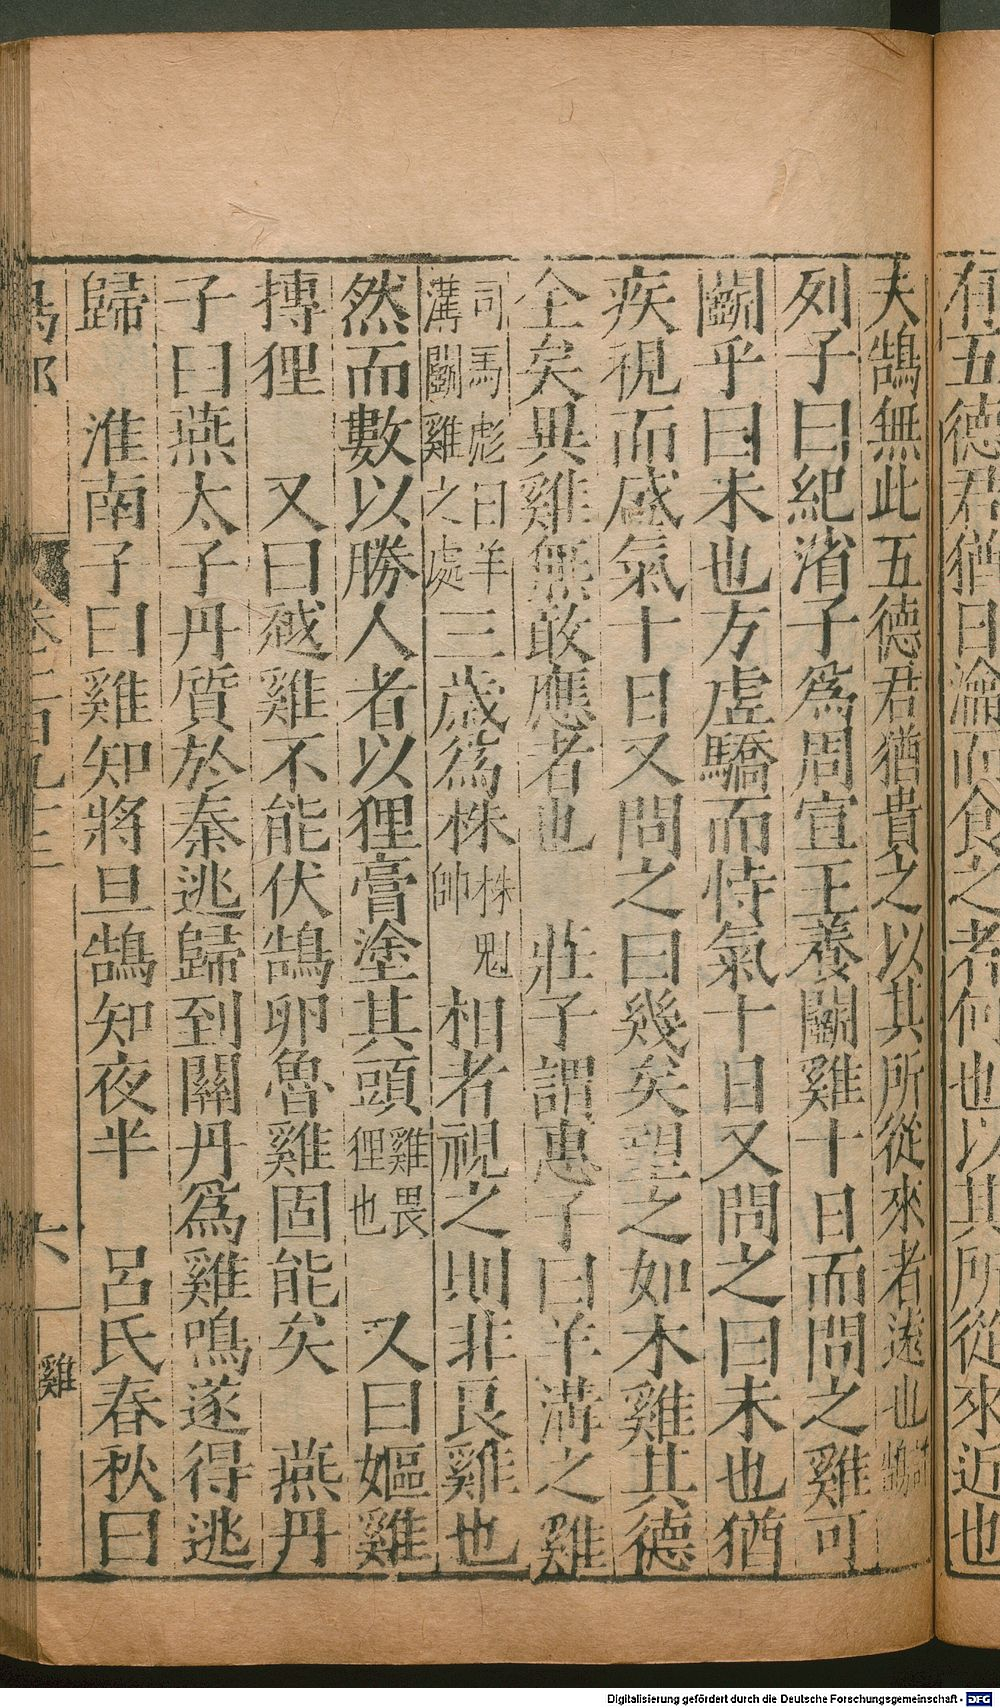 有五德君猶日瀹而食之者何也以其所從來近也
夫鵠無此五德君猶貴之以其所從來者遠也詩鵠
列子曰紀渻子爲周宣王養鬭雞十日而問之雞可
鬭乎曰未也方虛驕而恃氣十日又問之曰未也猶
疾視而盛氣十日又問之曰幾矣望之如木雞其德
全矣異雞無敢應者也　莊子謂惠子曰羊溝之雞
司馬彪曰羊溝鬭雞之處三歲爲株株魁帥相者視之則非良雞也
然而數以勝人者以狸膏塗其頭雞畏狸也　又曰嫗雞
搏狸　又曰越雞不能伏鵠卵魯雞固能矣　燕丹
子曰燕太子丹質於秦逃歸到關丹爲雞鳴遂得逃
歸　淮南子曰雞知將旦鵠知夜半　呂氏春秋曰
鳥部　卷二百九三　六　雞
Digitalisierung gefördert durch die Deutsche Forschungsgemeinschaft - DFG